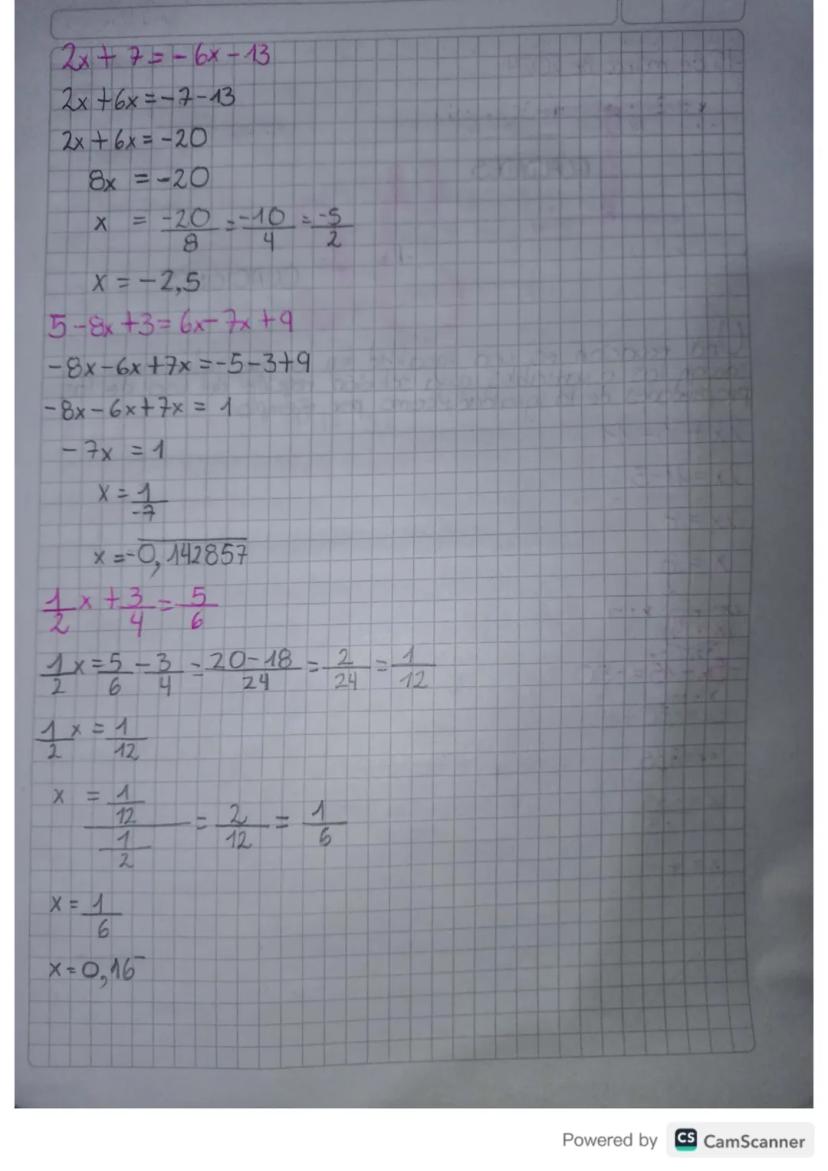 2x + 7 = - 6x - 13
2x + 6x = -7 - 13
2x + 6x = -20
8x = -20
x = -20/8 = -10/4 = -5/2
x = -2,5
5 - 8x + 3 = 6x - 7x + 9
-8x - 6x + 7x = -5 - 3 + 9
-8x - 6x + 7x = 1
-7x = 1
x = 1/-7
x = -0,142857
1/2 x + 3/4 = 5/6
1/2 x = 5/6 - 3/4 = 20-18/24 = 2/24 = 1/12
1/2 x = 1/12
x = 1/12 / 1/2 = 2/12 = 1/6
x = 1/6
x = 0,16
Powered by CS CamScanner